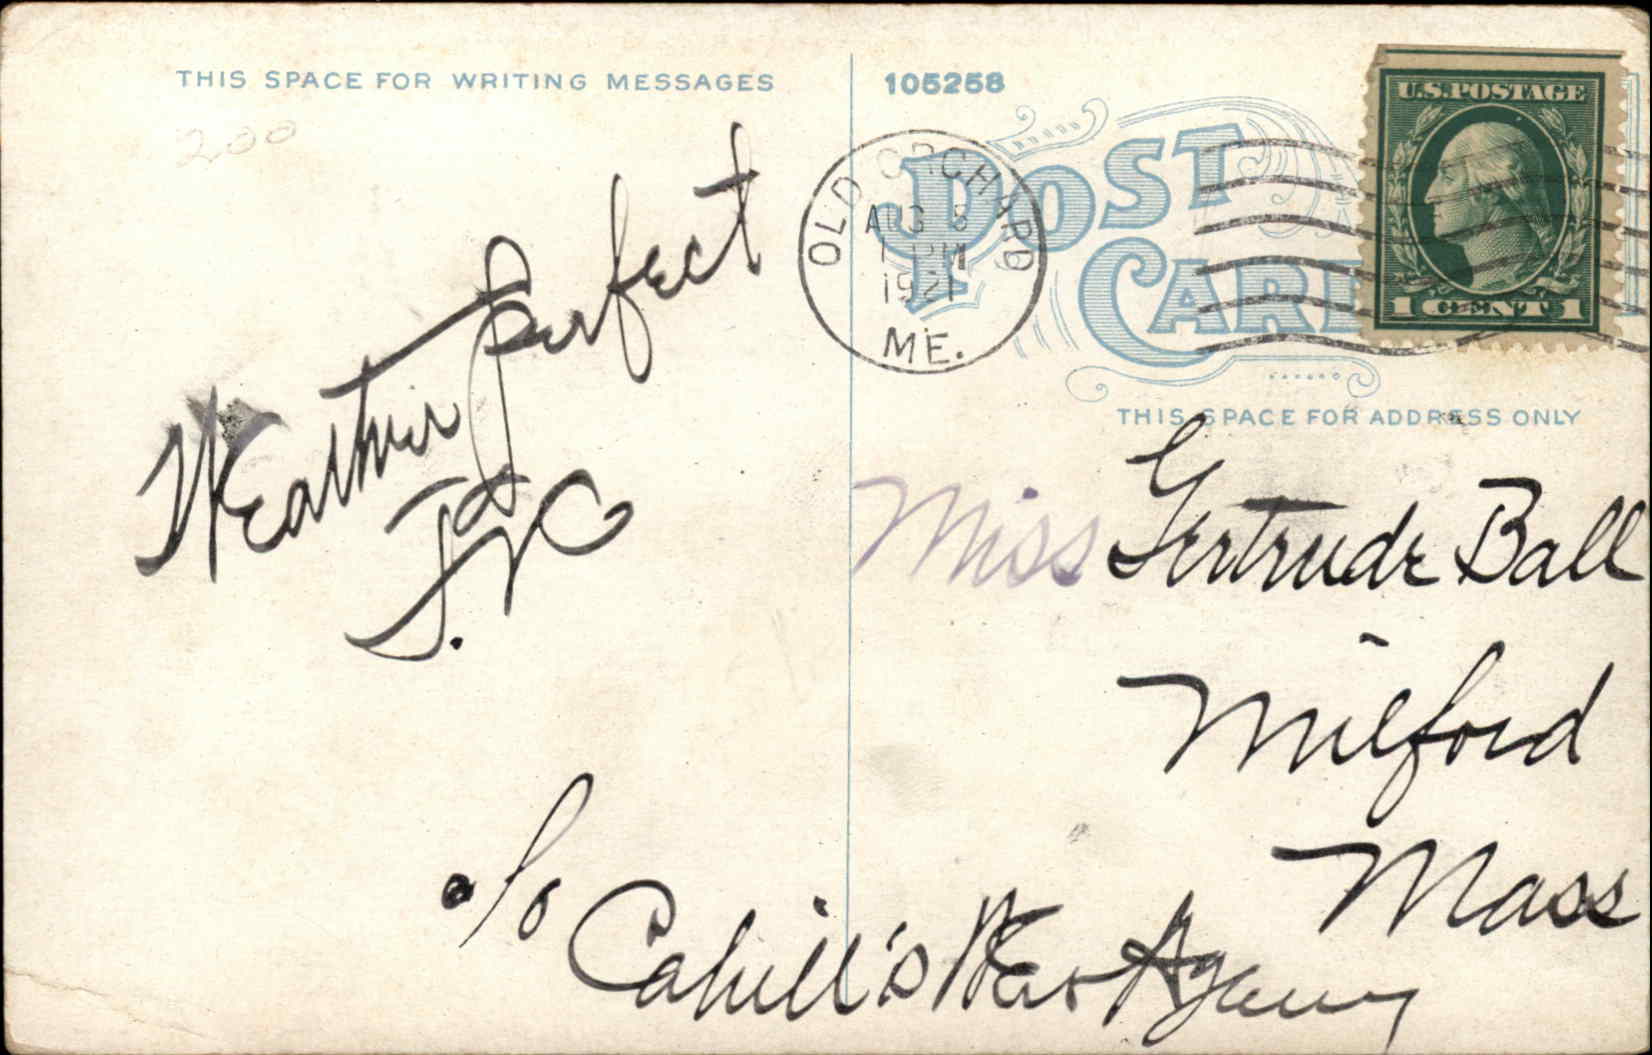 THIS SPACE FOR WRITING MESSAGES
105258
200
POST
CARD
OLD ORCHARD
AUG 8
1 PM
1921
ME.
U.S. POSTAGE
1 CENT 1
THIS SPACE FOR ADDRESS ONLY
Weather perfect
Miss Gertrude Ball
Milford
Mass
c/o Cahill's News Agency